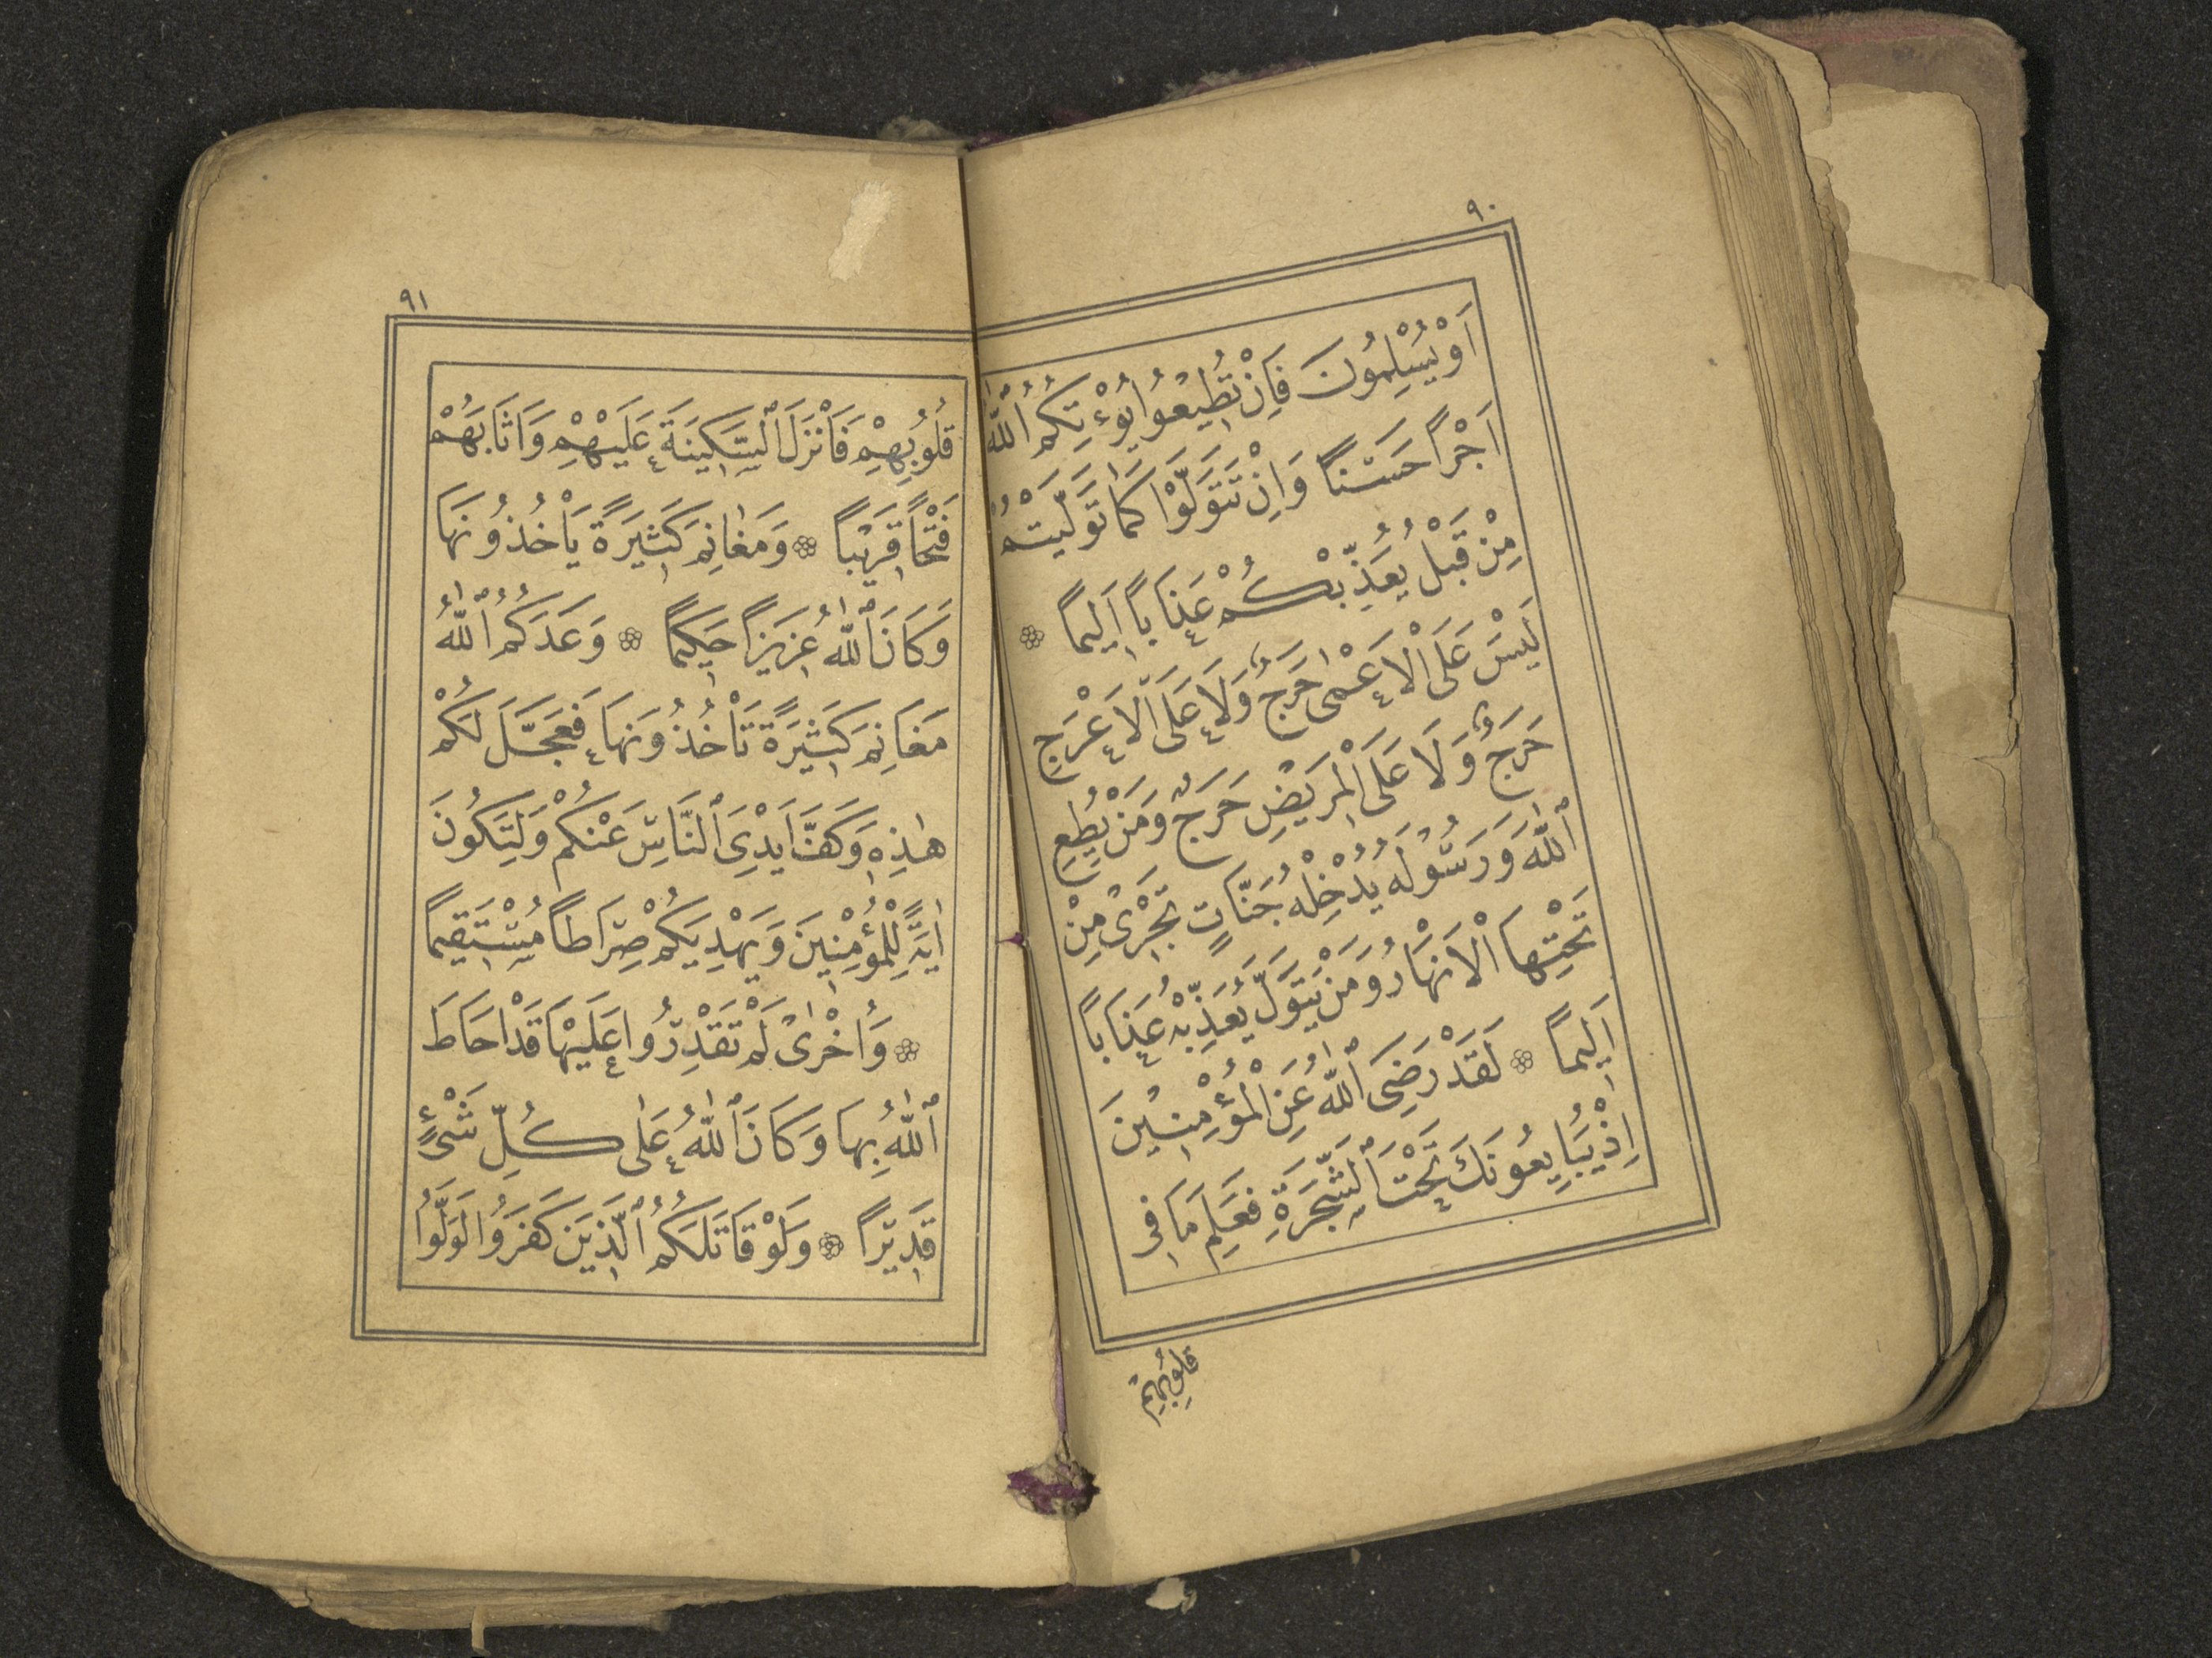 ٩٠
اَوْ يُسْلِمُونَ فَاِنْ تُطِيْعُوا يُؤْتِكُمُ ٱللّٰهُ
اَجْراً حَسَناً وَاِنْ تَتَوَلَّوْا كَمَا تَوَلَّيْتُمْ
مِنْ قَبْلُ يُعَذِّبْكُمْ عَذَاباً اَلِيماً ۞
لَيْسَ عَلَى الْاَعْمٰى حَرَجٌ وَلَا عَلَى الْاَعْرَجِ
حَرَجٌ وَلَا عَلَى الْمَرِيْضِ حَرَجٌ وَمَنْ يُطِعِ
ٱللّٰهَ وَرَسُوْلَهُ يُدْخِلْهُ جَنَّاتٍ تَجْرِىْ مِنْ
تَحْتِهَا الْاَنْهَارُ وَمَنْ يَتَوَلَّ يُعَذِّبْهُ عَذَاباً
اَلِيماً ۞ لَقَدْ رَضِىَ ٱللّٰهُ عَنِ الْمُؤْمِنِيْنَ
اِذْ يُبَايِعُونَكَ تَحْتَ ٱلشَّجَرَةِ فَعَلِمَ مَا فِى
قُلُوبِهِمْ
٩١
قُلُوْبِهِمْ فَاَنْزَلَ ٱلسَّكِيْنَةَ عَلَيْهِمْ وَاَثَابَهُمْ
فَتْحاً قَرِيْباً ۞ وَمَغٰانِمَ كَثِيْرَةً يَاْخُذُونَهَا
وَكَانَ ٱللّٰهُ عَزِيْزاً حَكِيْماً ۞ وَعَدَكُمُ ٱللّٰهُ
مَغَانِمَ كَثِيْرَةً تَاْخُذُونَهَا فَعَجَّلَ لَكُمْ
هٰذِهٖ وَكَفَّ اَيْدِىَ ٱلنَّاسِ عَنْكُمْ وَلِتَكُونَ
اٰيَةً لِّلْمُؤْمِنِيْنَ وَيَهْدِيَكُمْ صِرَاطاً مُسْتَقِيْماً
۞ وَاُخْرٰىْ لَمْ تَقْدِرُوا عَلَيْهَا قَدْ اَحَاطَ
ٱللّٰهُ بِهَا وَكَانَ ٱللّٰهُ عَلٰى كُلِّ شَىْءٍ
قَدِيْراً ۞ وَلَوْ قَاتَلَكُمُ ٱلَّذِيْنَ كَفَرُوْا لَوَلَّوُا